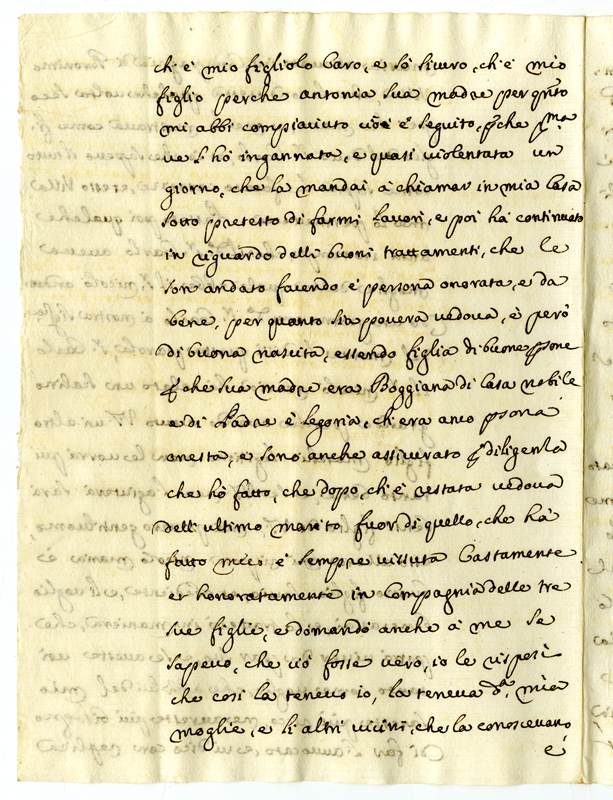 ch'è mio figliolo Caro, e sò sicuro, ch'è mio
figlio perche antonia sua madre per qnto
mi abbi compiaciuto è seguito, pche pma
ve l'hò ingannata, e quasi violentata un
giorno, che la mandai à chiamar in mia Casa
sotto pretesto di farmi Lavori, e poi hà continuato
in riguardo delli buoni trattamenti, che le
son andato facendo è persona onorata, e da
bene, per quanto sia povera vedova, è però
di buona nascita, essendo figlia di buone psone
pche sua madre era Boggiana di Casa nobile
e di Padre è Legoria, ch'era anco psona
onesta, e sono anche assicurato p diligenza
che hò fatto, che dopo, ch'è restata vedova
dell'ultimo marito fuor di quello, che hà
fatto meco è sempre vissuta Castamente
et honoratamente in Compagnia delle tre
sue figlie, e domandò anche à me se
sapevo, che ciò fosse vero, io le risposi
che così la tenevo io, la teneva da. mia
moglie, e li altri vicini, che la conoscevano
è